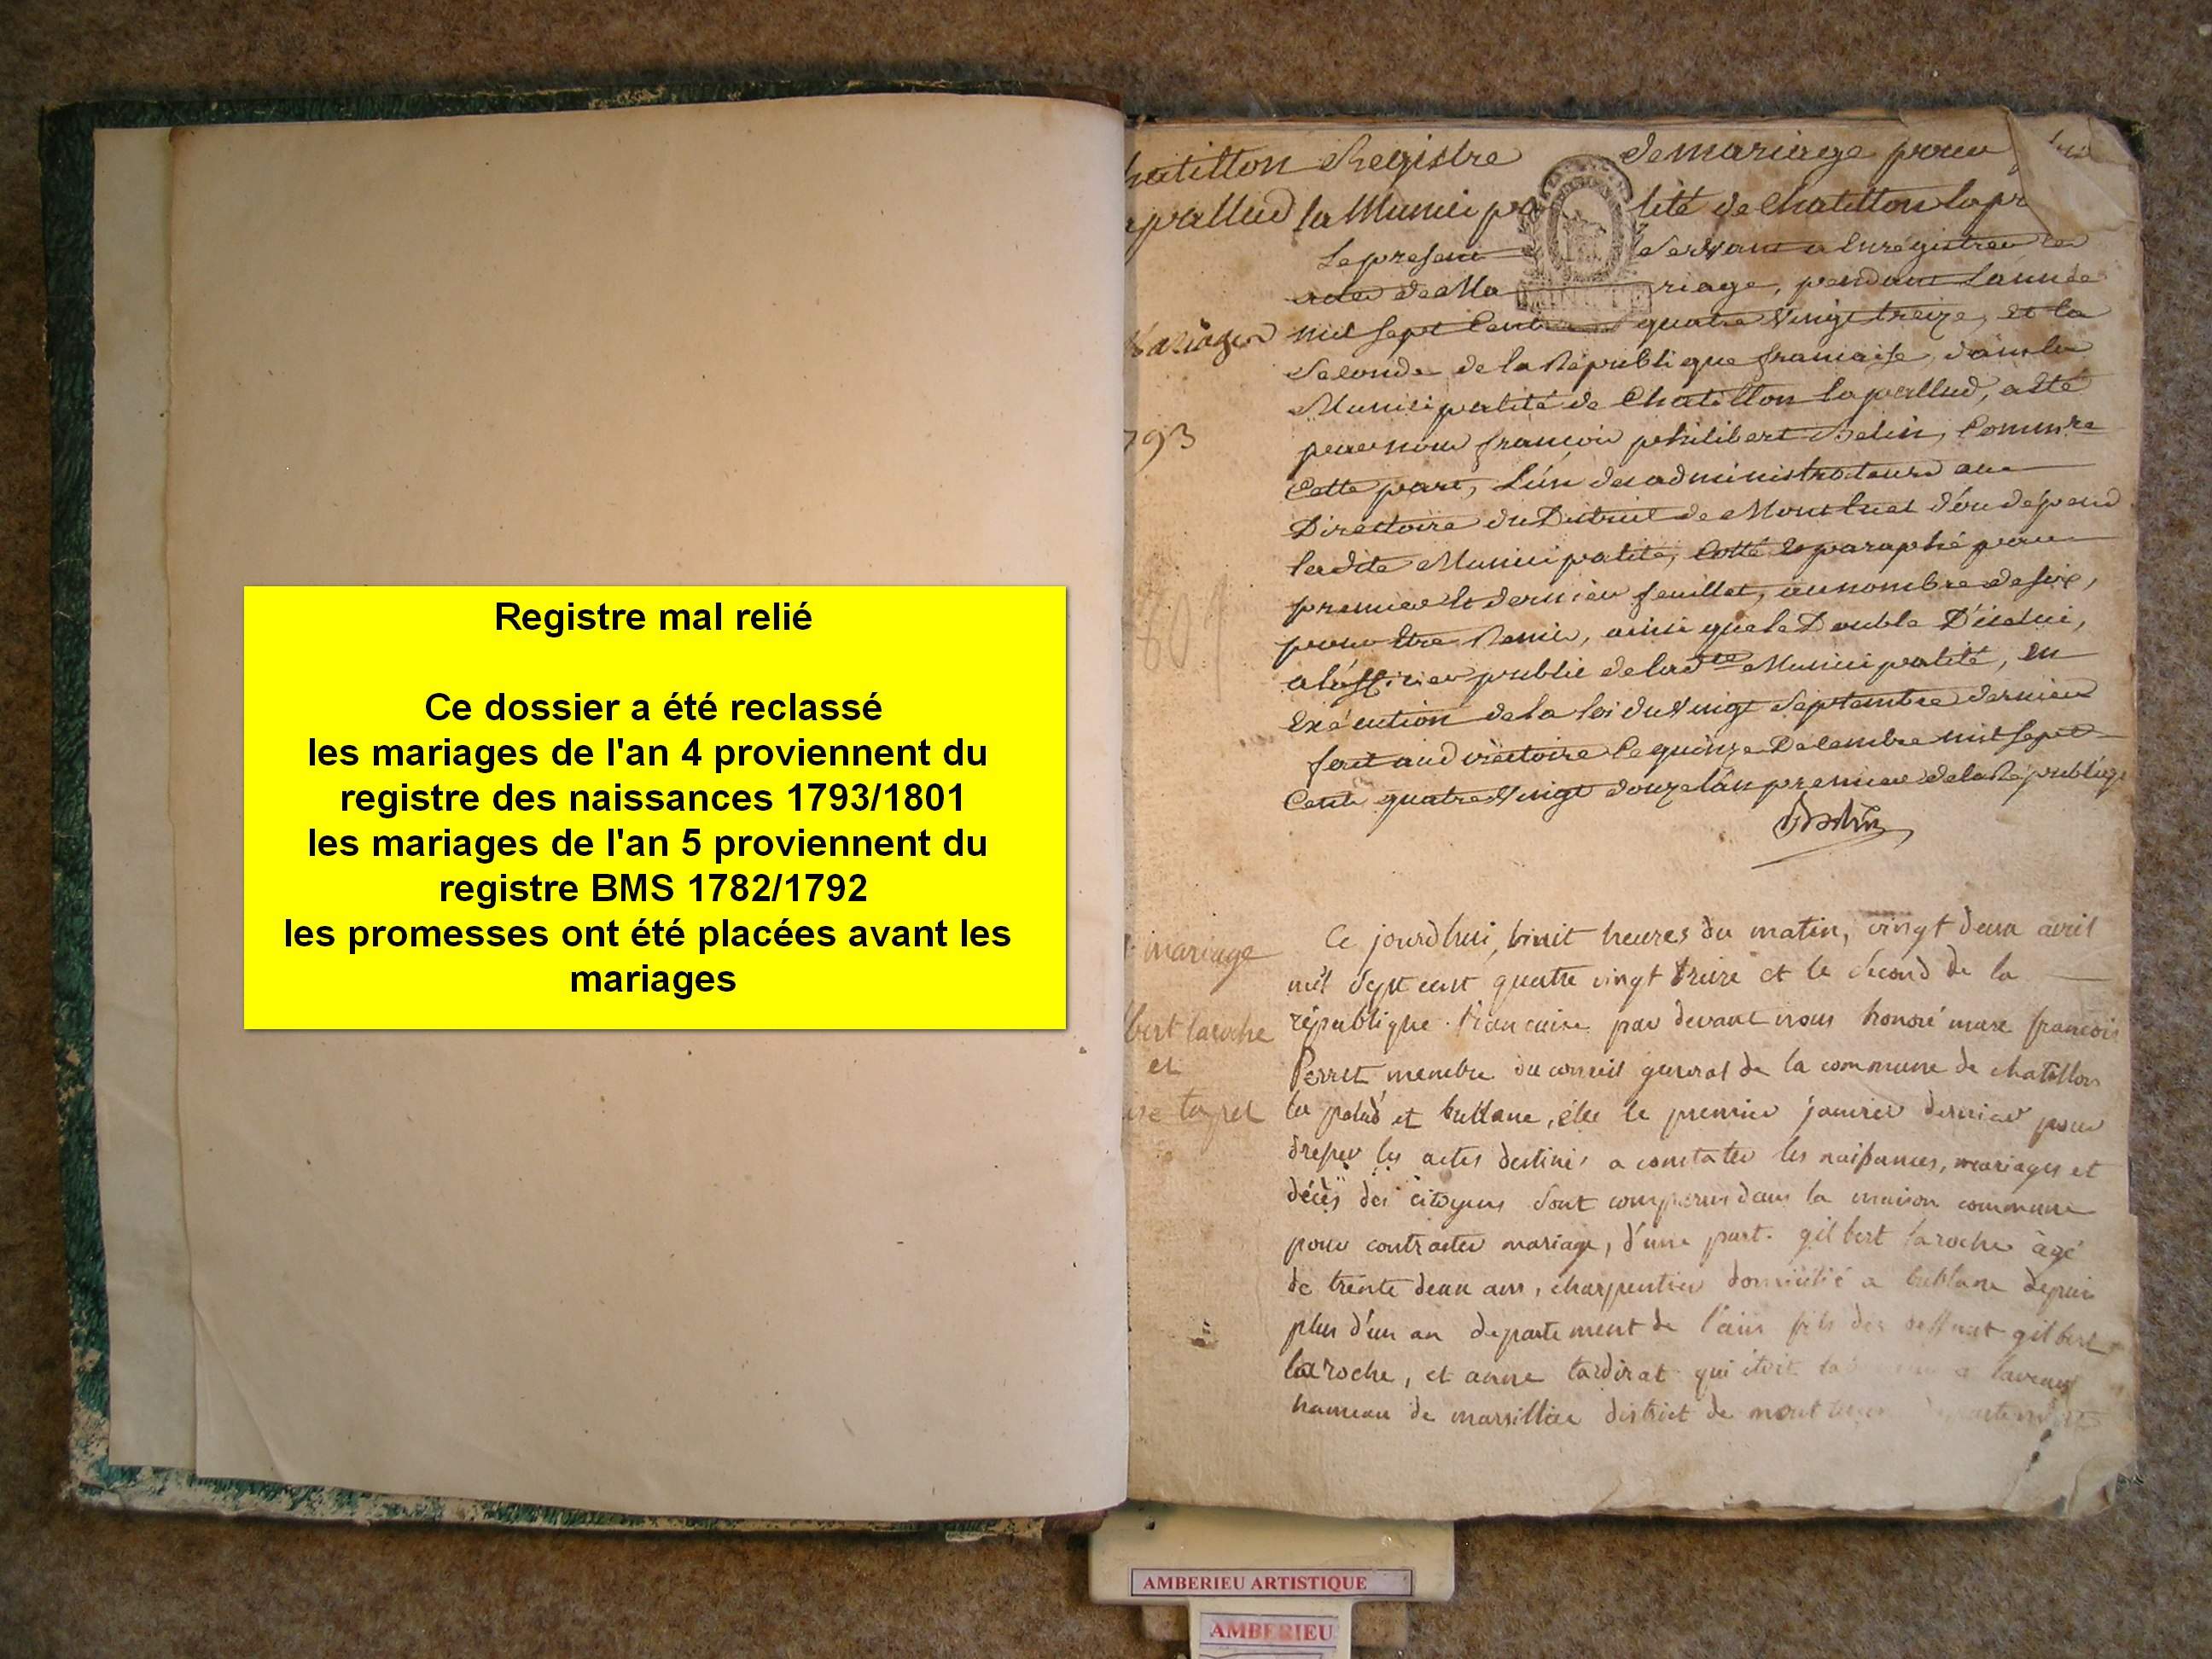 Registre mal relié
Ce dossier a été reclassé
les mariages de l'an 4 proviennent du
registre des naissances 1793/1801
les mariages de l'an 5 proviennent du
registre BMS 1782/1792
les promesses ont été placées avant les
mariages
hatillon Registre de mariage pour
apallud la Municipalité de Chatillon lapa
Le present servant a Enregistrer les
actes de Mariage, pendant L'année
mil sept Cent quatre Vingt treize, et la
Seconde de la République francaise, dans la
Municipalité de Chatillon lapallud, a été
par nous françois philibert Belin, Commre
Cette part, L'un des administrateurs au
Directoire du District de Montluel d'ou depend
ladite Municipalité, Cotté et paraphé par
premier et dernier feuillet, au nombre de six,
pour Etre Remis, ainsi que le Double D'icelui,
a l'officier public de ladte Municipalité, En
Exécution de la loi du Vingt Septembre dernier
fait au directoire le quinze Decembre mil sept
Cent quatre Vingt douze l'an premier de la Republique
Belin
Mariages
793
mariage
bert laroche
et
tapet
Ce jourdhui, huit heures du matin, vingt deux avril
mil sept cent quatre vingt treize et le second de la
république francaise par devant nous honoré marc francois
Perret membre du conseil general de la commune de chatillon
la palud et bublane, élu le premier janvier dernier pour
dresser les actes destinés a constater les naissances, mariages et
décès des citoyens sont comparus dans la maison commune
pour contracter mariage, d'une part. gilbert laroche âgé
de trente deux ans, charpentier domicilié a bublane depuis
plus d'un an departement de l'ain fils des deffunt gilbert
laroche, et anne tardirat qui étoit a
hameau de marsilliac district de mont departement
AMBERIEU ARTISTIQUE
AMBERIEU